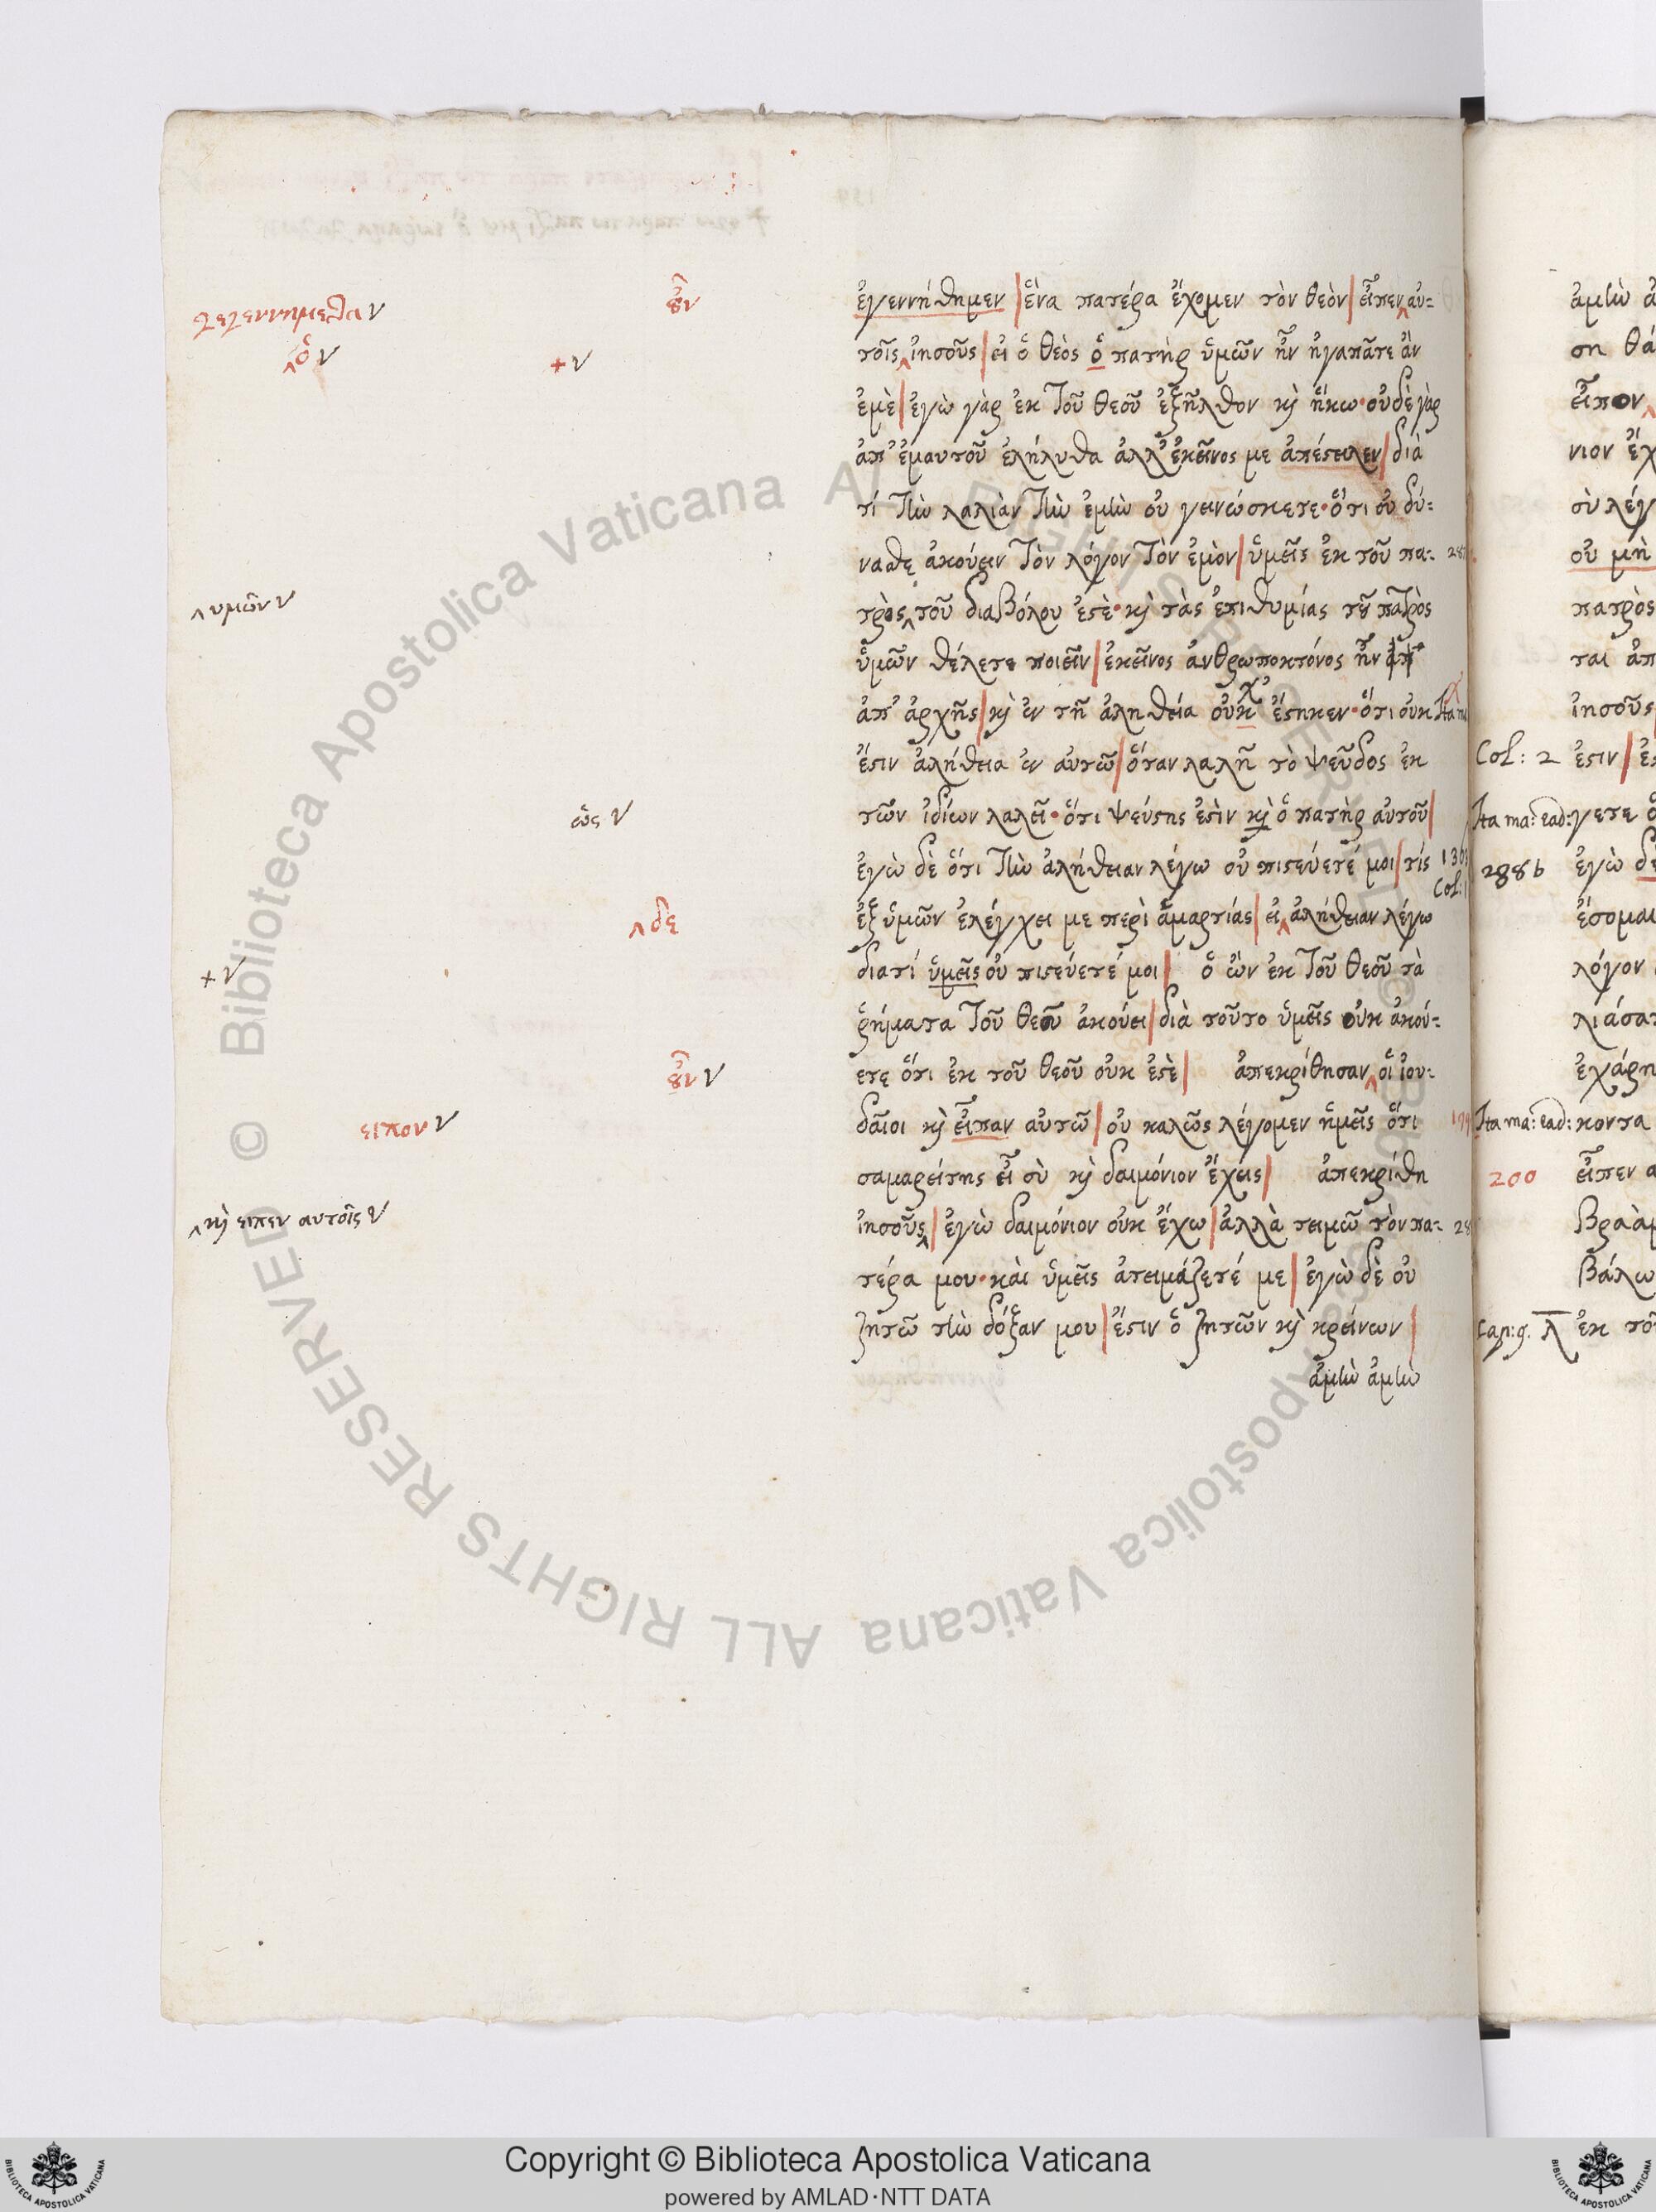 γεγεννημεθα ν
οὖν
ἐγεννήθημεν | ἕνα πατέρα ἔχομεν τὸν θεὸν | εἶπεν αὐ=
ὁ ν
+ ν
τοῖς ἰησοῦς | εἰ ὁ θεὸς ὁ πατὴρ ὑμῶν ἦν ἠγαπᾶτε ἂν
ἐμὲ | ἐγὼ γὰρ ἐκ τοῦ θεοῦ ἐξῆλθον κὶ ἥκω · οὐδὲ γὰρ
ἀπ' ἐμαυτοῦ ἐλήλυθα ἀλλ' ἐκεῖνος με ἀπέστειλεν | διὰ
τί τὴν λαλιὰν τὴν ἐμὴν οὐ γεινώσκετε · ὅτι οὐ δύ=
νασθε ἀκούειν τὸν λόγον τὸν ἐμὸν | ὑμεῖς ἐκ τοῦ πα=
^ υμῶν ν
τρὸς ^ τοῦ διαβόλου ἐστὲ · κὶ τὰς ἐπιθυμίας τοῦ πατρὸς
ὑμῶν θέλετε ποιεῖν | ἐκεῖνος ἀνθρωποκτόνος ἦν
ἀπ' ἀρχῆς | κὶ ἐν τῇ ἀληθεία οὐκ ἔστηκεν · ὅτι οὐκ
χ
ἔστιν ἀλήθεια ἐν αὐτῶ | ὅταν λαλῇ τὸ ψεῦδος ἐκ
ὡς ν
τῶν ἰδίων λαλεῖ · ὅτι ψεύστης ἐστὶν κὶ ὁ πατὴρ αὐτοῦ |
ἐγὼ δὲ ὅτι τὴν ἀλήθειαν λέγω οὐ πιστεύετέ μοι | τίς
Col: 1
^ δε
ἐξ ὑμῶν ἐλέγχει με περὶ ἁμαρτίας | εἰ ^ ἀλήθειαν λέγω
+ ν
διατί ὑμεῖς οὐ πιστεύετέ μοι | ὁ ὢν ἐκ τοῦ θεοῦ τὰ
ῥήματα τοῦ θεοῦ ἀκούει | διὰ τοῦτο ὑμεῖς οὐκ ἀκού=
οὖν ν
ετε ὅτι ἐκ τοῦ θεοῦ οὐκ ἐστὲ | ἀπεκρίθησαν ^ οἱ ἰου=
ειπον ν
δαῖοι κὶ εἶπαν αὐτῶ | οὐ καλῶς λέγομεν ἡμεῖς ὅτι
σαμαρείτης εἶ σὺ κὶ δαιμόνιον ἔχεις | ἀπεκρίθη
^ κὶ ειπεν αυτοῖς ν
ἰησοῦς ^ | ἐγὼ δαιμόνιον οὐκ ἔχω | ἀλλὰ τειμῶ τὸν πα=
τέρα μου · καὶ ὑμεῖς ἀτειμάζετέ με | ἐγὼ δὲ οὐ
ζητῶ τὴν δόξαν μου | ἔστιν ὁ ζητῶν κὶ κρείνων |
ἀμὴν ἀμὴν
ἀμὴν
ση θά
εἶπον
νιον ἔχ
σὺ λέγ
οὐ μὴ
πατρὸς
ται ἀπ
ἰησοῦς
Col: 2 ἐστιν | ἐσ
Ita ma: ead: γετε ὁ
288 b ἐγὼ δὲ
ἔσομαι
λόγον
λιάσατ
ἐχάρη
Ita ma: ead: κοντα
200 εἶπεν α
βραὰμ
βάλω
Cap: 9. λ ἐκ το
© Biblioteca Apostolica Vaticana ALL RIGHTS RESERVED
Copyright © Biblioteca Apostolica Vaticana
powered by AMLAD·NTT DATA
BIBLIOTECA APOSTOLICA VATICANA